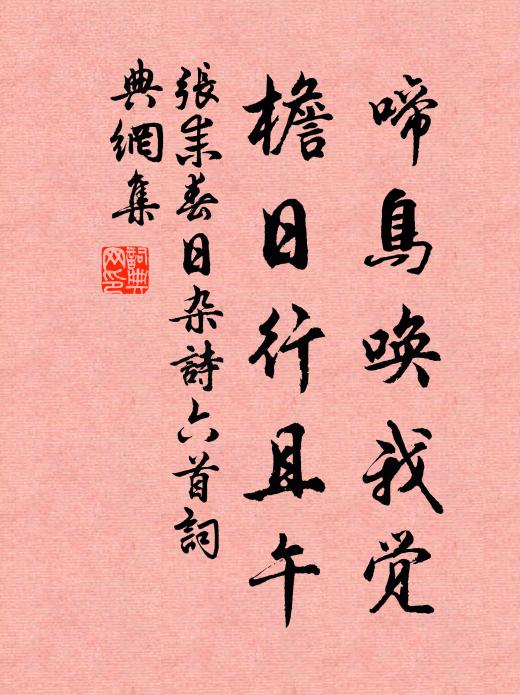 啼鳥喚我覺
檐日行且午
張耒春日杂詩六首詞
典網集
詞典
网印